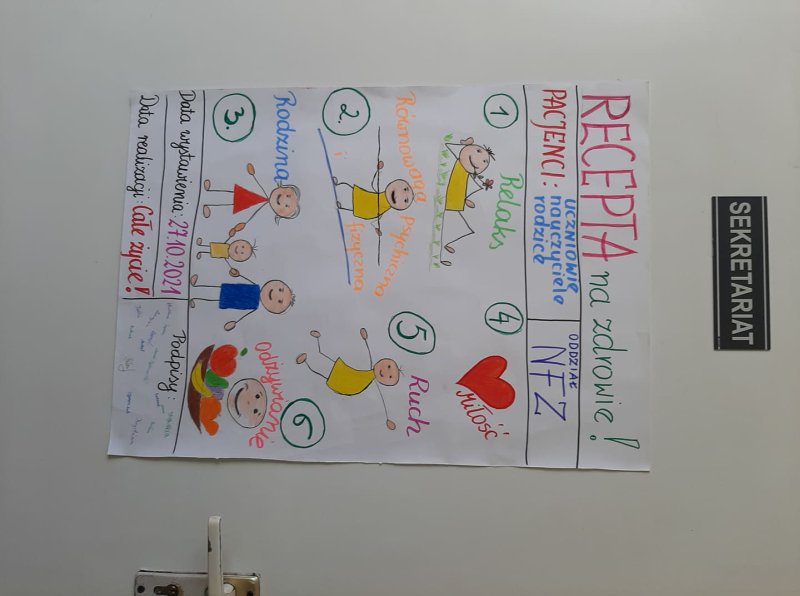 SEKRETARIAT
RECEPTA na zdrowie!
PACJENCI: uczniowie
nauczyciele
rodzice
ODDZIAŁ
NFZ
1 Relaks
2. Równowaga psychiczna
i fizyczna
3. Rodzina
4 Miłość
5 Ruch
6 Odżywianie
Data wystawienia: 27.10.2021
Data realizacji: Całe życie!
Podpisy: